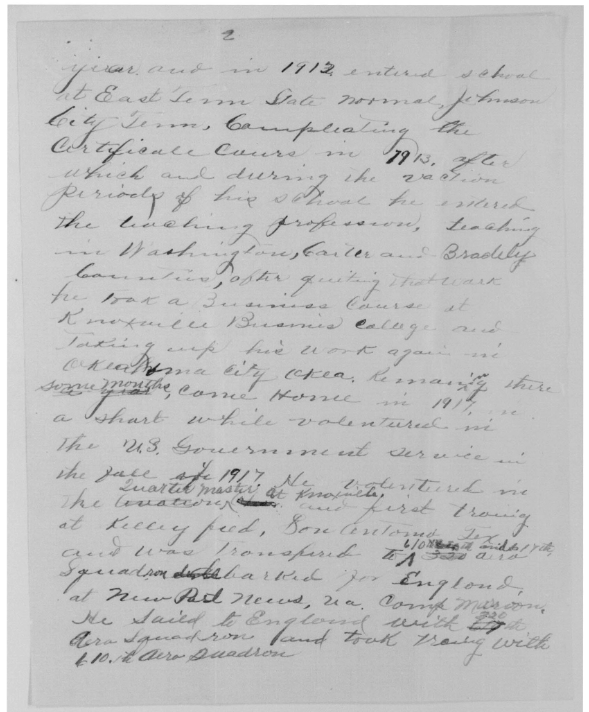 2
year. and in 1912 entered school
at East Tenn State Normal, Johnson
City Tenn, Compleating the
Certificate Cours in 1913. after
which and durring the vaction
Periods of his school he entered
the teaching profession, teaching
in Washington, Carter and Bradely
Counties, after quiting that work
he took a Business Course at
Knoxville Busnis College and
Taking up his work again in
Oklahoma City Okla. Remaning there
some months, come Home in 1917, in
a short while volentured in
the U.S. Government Service in
the fall of 1917 He volentured in
Quarter Master at Knoxville,
the aviation and first traing
at Kelley feed, San Antonio Tex
and was transpered to aero
Squadron barked for England,
at New Port News, Va. Camp
He Sailed to England with
Aero Squadron and took traing with
610.th Aero Squadron